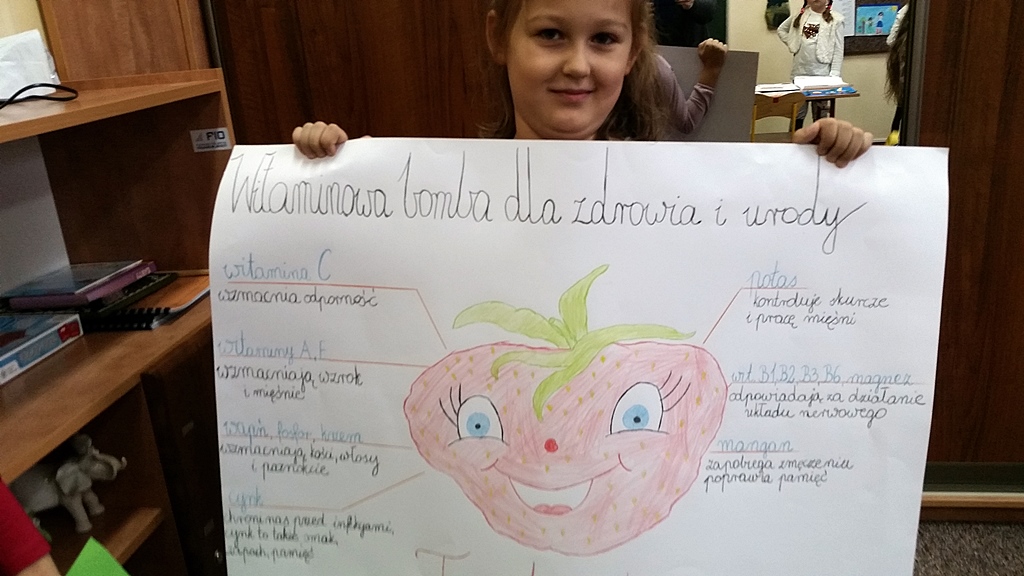 FIO
Witaminowa bomba dla zdrowia i urody
witamina C
wzmacnia odporność
witaminy A, E
wzmacniają wzrok
i mięśnie
wapń, fosfor, krzem
wzmacniają kości, włosy
i paznokcie
cynk
chroni nas przed infekcjami,
cynk to także smak,
węch, pamięć
potas
kontroluje skurcze
i pracę mięśni
wit. B1, B2, B3, B6, magnez
odpowiadają za działanie
układu nerwowego
mangan
zapobiega zmęczeniu
poprawia pamięć